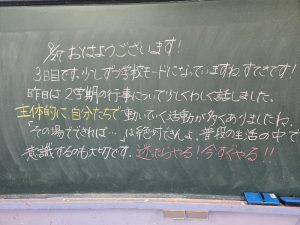 8/27 おはようございます!
3日目です。少しずつ学校モードになっていますね。すてきです!
昨日は2学期の行事について少しくわしく話しました。
主体的に自分たちで動いていく活動が多くありましたね。
「その場でできれば…」は絶対できんよ。普段の生活の中で
意識するのも大切です。迷ったらやる!今すぐやる!!